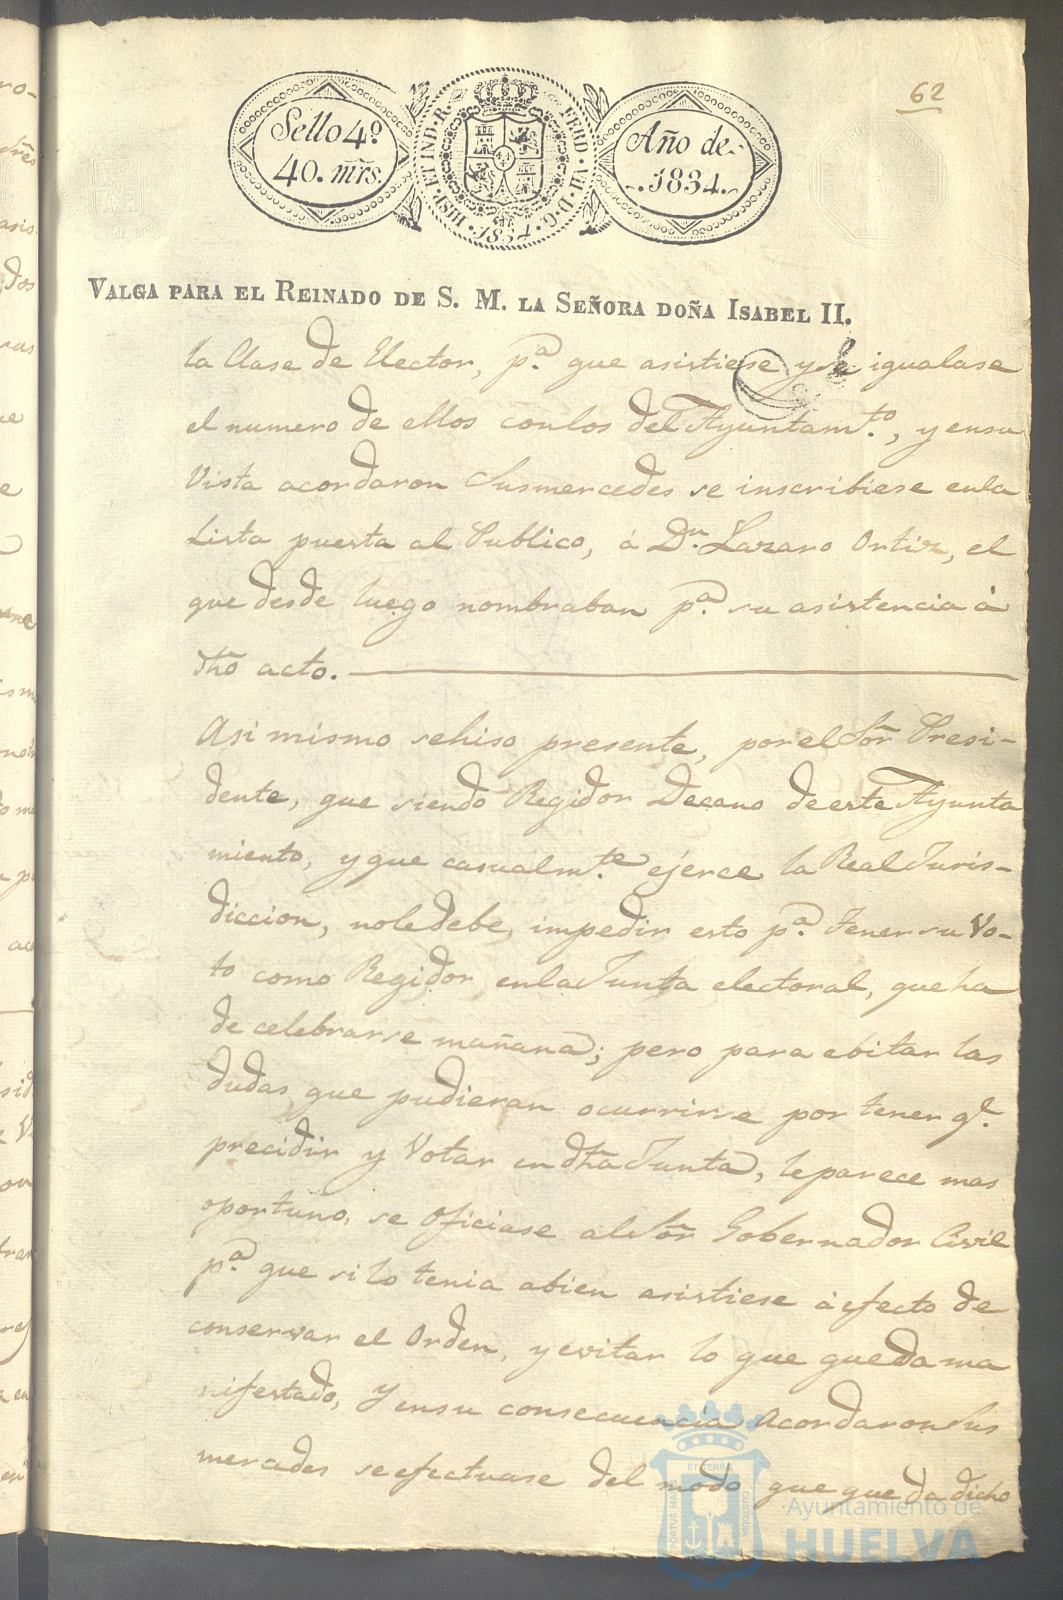 62
Sello 4º
40. mrs.
HISP. ET IND. R.
FERD. VII. D. G.
1834.
Año de
1834.
VALGA PARA EL REINADO DE S. M. LA SEÑORA DOÑA ISABEL II.
la Clase de Elector, p.ª que asistiese y se igualase
el numero de ellos conlos del Ayuntam.to, y ensu
Vista acordaron Susmercedes se inscribiese enla
Lista puesta al Publico, á D.n Lazaro Ortiz, el
que desde luego nombraban p.ª su asistencia á
dho acto.
Asi mismo sehiso presente, porel Sor Presi-
dente, que siendo Regidor Decano deeste Ayunta
miento, y que casualm.te ejerce la Real Juris-
diccion, noledebe, impedir esto p.ª tenersu Vo-
to como Regidor enla Junta electoral, que ha
de celebrarse mañana; pero para ebitar las
dudas que pudieran ocurrirse por tener q.e
precidir y Votar en dha Junta, leparece mas
oportuno, se Oficiase al Sor Gobernador Civil
p.ª que silo tenia abien asistiese á efecto de
conservar el Orden, y evitar lo que queda ma
nifestado, Y ensu consecuencia Acordaron Sus
mercedes se efectuase del modo que queda dicho
PORTUS MARIS
ET TERRAE
CUSTODIA
Ayuntamiento de
HUELVA